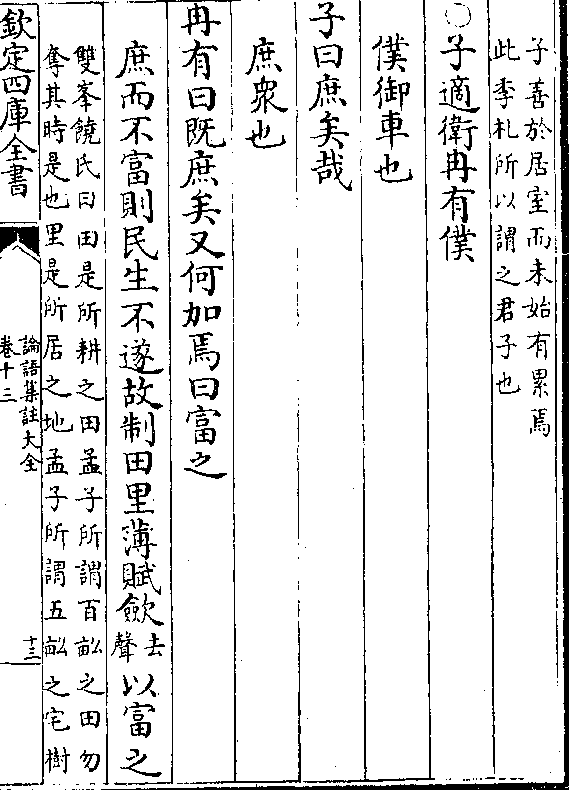 子善於居室而未始有累焉
此季札所以謂之君子也
○子適衛冉有僕
僕御車也
子曰庶矣哉
庶衆也
冉有曰既庶矣又何加焉曰富之
庶而不富則民生不遂故制田里薄賦歛去聲以富之
雙峯饒氏曰田是所耕之田孟子所謂百畝之田勿
奪其時是也里是所居之地孟子所謂五畝之宅樹
欽定四庫全書
論語集註大全
卷十三
十三